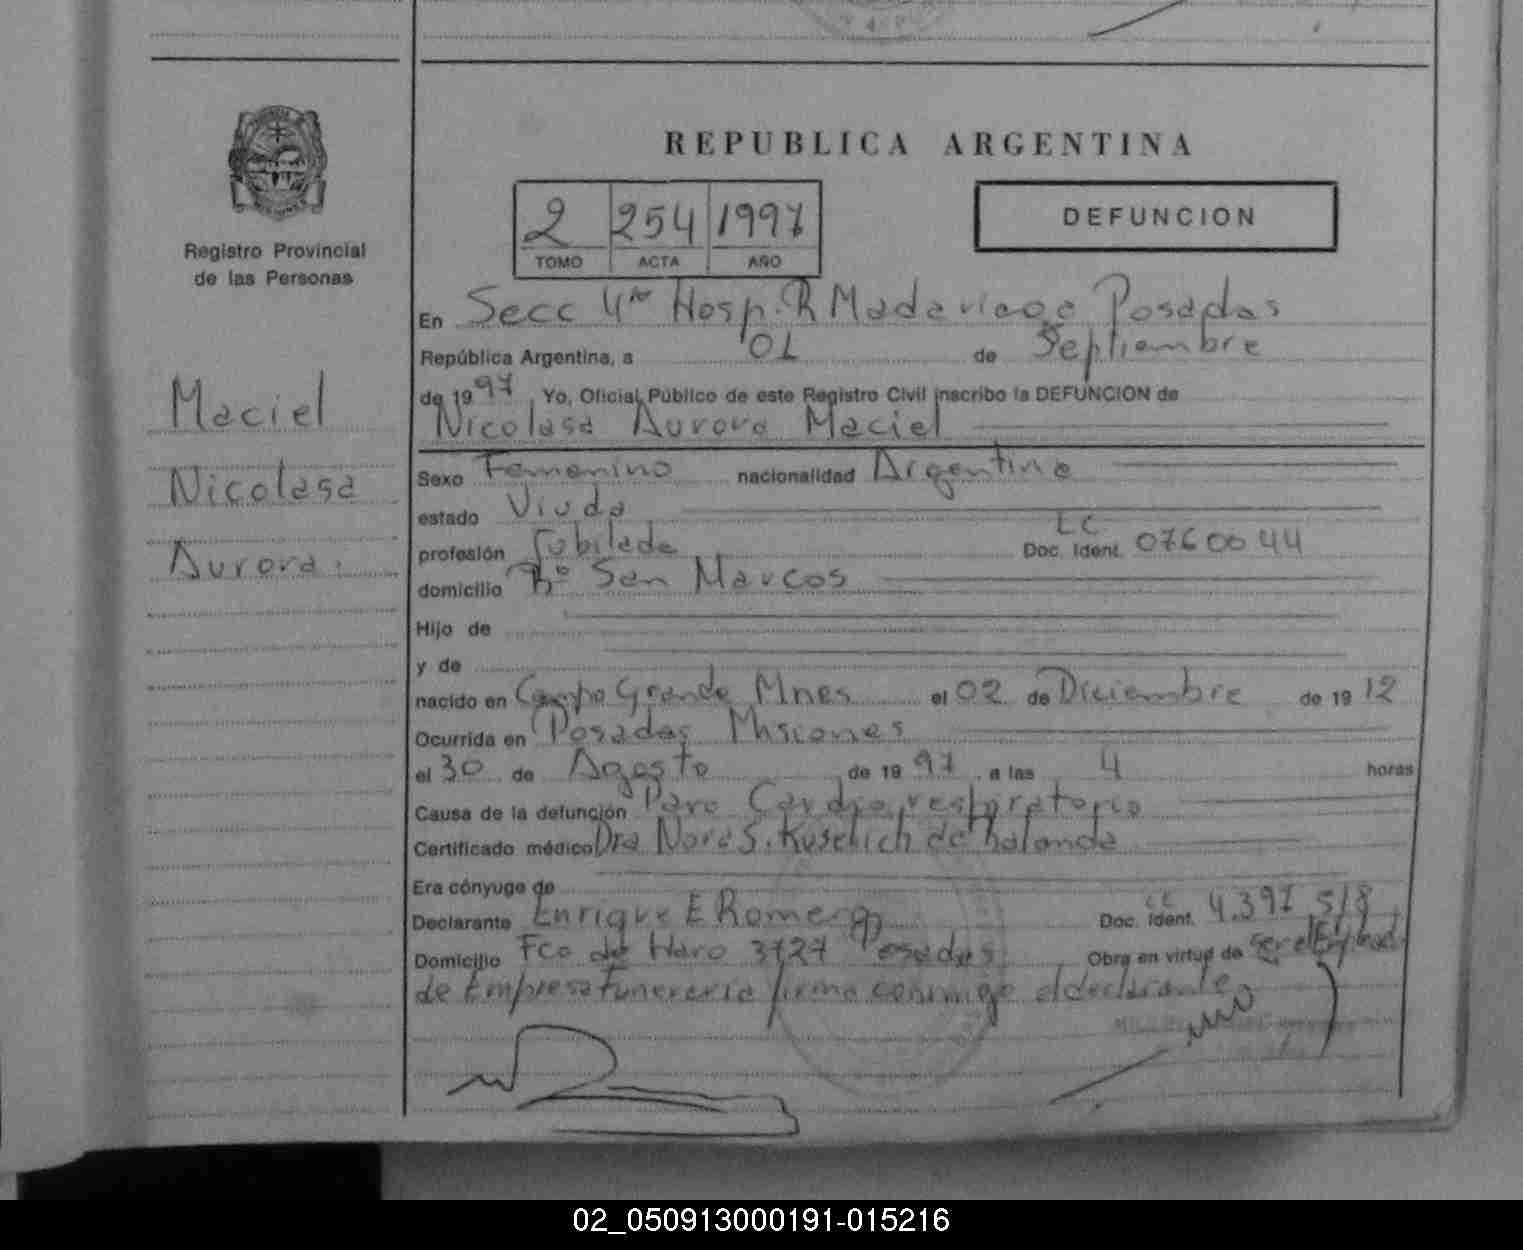 REPUBLICA ARGENTINA
2 254 1997
TOMO ACTA AÑO
DEFUNCION
Registro Provincial
de las Personas
Maciel
Nicolasa
Aurora.
En Secc 4ta Hosp. R Madariaga Posadas
República Argentina, a 01 de Septiembre
de 1997 Yo, Oficial Público de este Registro Civil inscribo la DEFUNCION de
Nicolasa Aurora Maciel
Sexo Femenino nacionalidad Argentina
estado Viuda
profesión Jubilada LC Doc. Ident. 0760044
domicilio Bº San Marcos
Hijo de
y de
nacido en Campo Grande Mnes el 02 de Diciembre de 1912
Ocurrida en Posadas Misiones
el 30 de Agosto de 1997 a las 4 horas
Causa de la defunción Paro Cardio respiratorio
Certificado médico Dra Nora S. de
Era cónyuge de
Declarante Enrique E Romero Doc. Ident. 4.397 518
Domicilio Fco de Haro 3727 Posadas Obra en virtud de ser el
de Empresa Funeraria firma conmigo el declarante
02_050913000191-015216